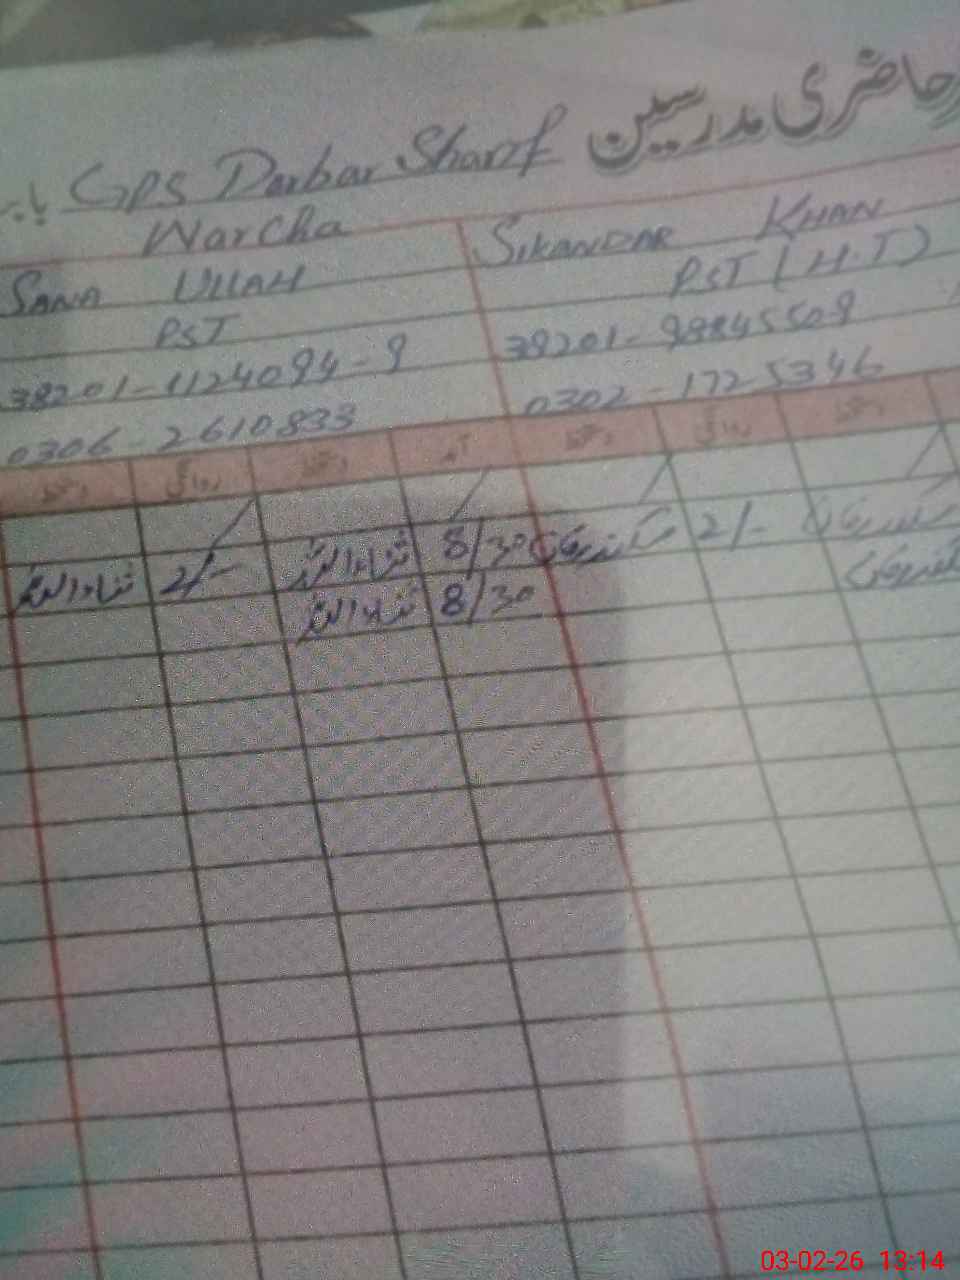 حاضری مدرسین GPS Darbar Sharif با
Warcha
SIKANDAR KHAN
PST (H.T)
38201-9884550-9
0302-1725346
SANA ULLAH
PST
38201-1124094-9
0306-2610833
دستخط روانگی دستخط آمد دستخط روانگی دستخط
سکندر خان 2/- سکندر خان 8/30 ثناء اللہ 2/- ثناء اللہ
سکندر خان 8/30 ثناء اللہ
03-02-26 13:14